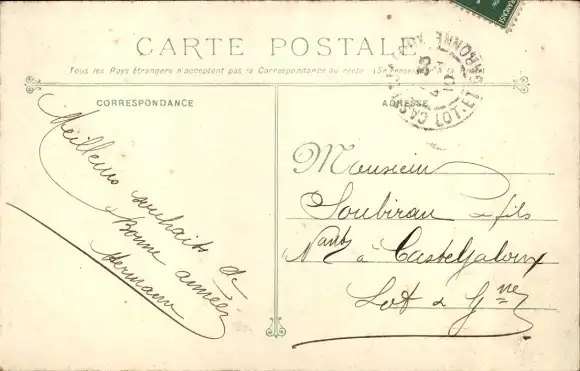 CARTE POSTALE
Tous les Pays Etrangers n'acceptent pas la Correspondance au recto
CORRESPONDANCE
ADRESSE
Meilleurs souhaits de
Bonne année
Hermann
Monsieur
Soubiran fils
à Casteljaloux
Lot & Gne
LOT-ET-GARONNE